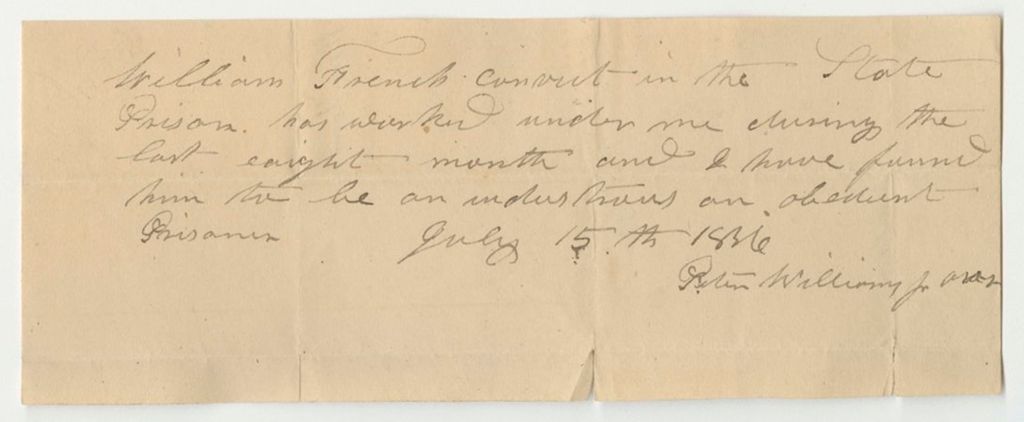 William French convict in the State
Prison. has worked under me during the
last eaight month and I have found
him to be an industrous an obedient
Prisoner July 15th 1836
Peter Williams Jr